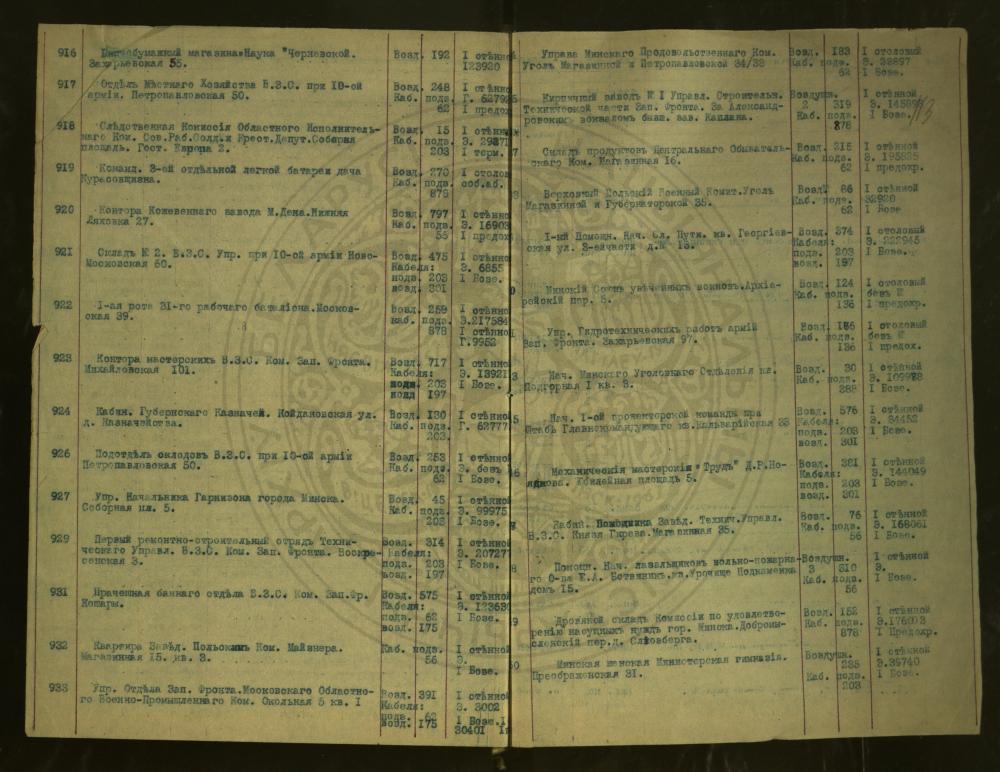 916 Писчебумажный магазинъ Наука "Черневской. Возд. 192 I стѣнно
Захарьевская 55. 123920
917 Отдѣлъ Мѣстнаго Хозяйства В.З.С. при 10-ой Возд. 248 I стѣнно
арміи. Петропавловская 50. Каб. подв. Г.
62 I предох
918 Слѣдственная Комиссія Областного Исполнитель- Возд. 15 I стѣнн
наго Ком. Сов.Раб.Солд.и Крест.Депут.Соборная Каб. подв. Э.
площадь. Гост. Европа 2. 203 I терм.
919 Команд. 3-ей отдѣльной легкой батареи дача Возд. 270 I столов
Курасовщизна. Каб. подв. соб.аб.
878
920 Контора Кожевеннаго завода М.Дена.Нижняя Возд. 797 I стѣнно
Ляховка 27. Каб. подв. Э. 16903
55 I предох
921 Складъ № 2. В.З.С. Упр. при 10-ой арміи Ново- Возд. 475 I стѣнно
Московская 60. Кабеля: Э. 6855
подв. 203 I Бозе.
возд. 301
922 I-ая рота 31-го рабочаго баталіона.Москов- Возд. 259 I стѣнно
ская 39. каб. подв. Э.217584
878 I стѣнно
Г.9952
923 Контора мастерскихъ В.З.С. Ком. Зап. Фронта. Возд. 717 I стѣнно
Михайловская 101. Кабеля: Э. 13921
подв. 203 I Бозе.
подд 197
924 Кабин. Губернскаго Казначея. Койдановская ул. Возд. 130 I стѣнно
д. Казначейства. Каб. подв. Г. 62777
203
926 Подотдѣлъ окладовъ В.З.С. при 10-ой арміи Возд. 253 I стѣнно
Петропавловская 50. Каб. подв. Э. безъ
62 I Бозе.
927 Упр. Начальника Гарнизона города Минска. Возд. 45 I стѣнно
Соборная пл. 5. Каб. подв. Э. 99975
203 I Бозе.
929 Первый ремонтно-строительный отрядъ Техни- Возд. 314 I стѣнно
ческаго Управл. В.З.С. Ком. Зап. Фронта. Воскре- Кабеля: Э. 207277
сенская 3. подв. 203 I Бозе.
возд. 197
931 Прачешная баннаго отдѣла В.З.С. Ком. Зап.Фр. Возд. 575 I стѣнно
Кошары. Кабеля: Э. 123630
подв. 62 I Бозе.
возд. 175
932 Квартира Завѣд. Польскимъ Ком. Майзнера. Каб. подв. I стѣнно
Магазинная 15. кв. 3. 56 Э.
I Бозе.
933 Упр. Отдѣла Зап. Фронта.Московскаго Областно- Возд. 391 I стѣнно
го Военно-Промышленнаго Ком. Окольная 5 кв. I Кабеля: Э. 3002
подв. 62 I Бозе.I
возд. 175 30401
Управа Минскаго Продовольственнаго Ком. Возд. 183 I столовый
Уголъ Магазинной и Петропавловской 34/32 Каб. подв. Э. 32897
62 I Бозе.
Кирпичный заводъ № I Управл. Строительн. Воздушн. I стѣнной
Технической части Зап. Фронта. За Александ- 2 319 Э.
ровскимъ вокзаломъ бывш. зав. Каплана. Каб. подв. I Бозе.
878
Складъ продуктовъ Центральнаго Обыватель- Возд. 215 I стѣнной
скаго Ком. Магазинная 16. Каб. подв. Э. 195825
62 I предохр.
Верховный Польскій Военный Комит.Уголъ Возд. 86 I стѣнной
Магазинной и Губернаторской 35. Каб. подв. 32920
62 I Бозе
I-ый Помощн. Нач. Сл. Пути. кв. Георгіев- Возд. 374 I столовый
ская ул. 3-ейчасти д.№ 13. Кабеля: Э. 222945
подв. 203 I Бозе.
возд. 197
Минскій Союзъ увѣчныхъ воиновъ.Архіе- Возд. 124 I столовый
рейскій пер. 5. Каб. подв. безъ №
136 I предохр.
Упр. Гидротехническихъ работъ армій Возд. I столовый
Зап. Фронта. Захарьевская 97. Каб. подв. безъ №
136 I предох.
Нач. Минскаго Уголовнаго Отдѣленія кв. Возд. 30 I стѣнной
Подгорная I кв. 3. Каб. подв. Э. 109978
388 I Бозе.
Нач. I-ой прожекторской команды при Возд. 576 I стѣнной
Штабѣ Главнокомандующаго кв.Кальварійская 33 Кабеля: Э. 84452
подв. 203 I Бозе.
возд. 301
Механическія мастерскія "Трудъ" Д.Р.Но- Возд. 381 I стѣнной
Юбилейная площадь 5. Кабеля: Э. 144049
подв. 203 I Бозе.
возд. 301
Кабин. Помощника Завѣд. Технич.Управл. Возд. 76 I стѣнной
В.З.С. Князя Гирева.Магазинная 35. Каб. подв. Э. 168061
56 I Бозе.
Помощн. Нач. лазальщиковъ вольно-пожарна- Воздушн. I стѣнной
го О-ва Е.А. кв.Урочище 3 310 Э.
домъ 15. Каб. подв. I Бозе.
56
Дровяной складъ Комиссіи по удовлетво- Возд. 152 I стѣнной
ренію насущныхъ нуждъ гор. Минска.Добромы- Каб. подв. Э.176003
сленскій пер.д. Сляовберга. 878 I Предохр.
Минская женская Министерская гимназія. Воздушн. I стѣнной
Преображенская 31. 235 Э.39740
Каб. подв. I Бозе.
203